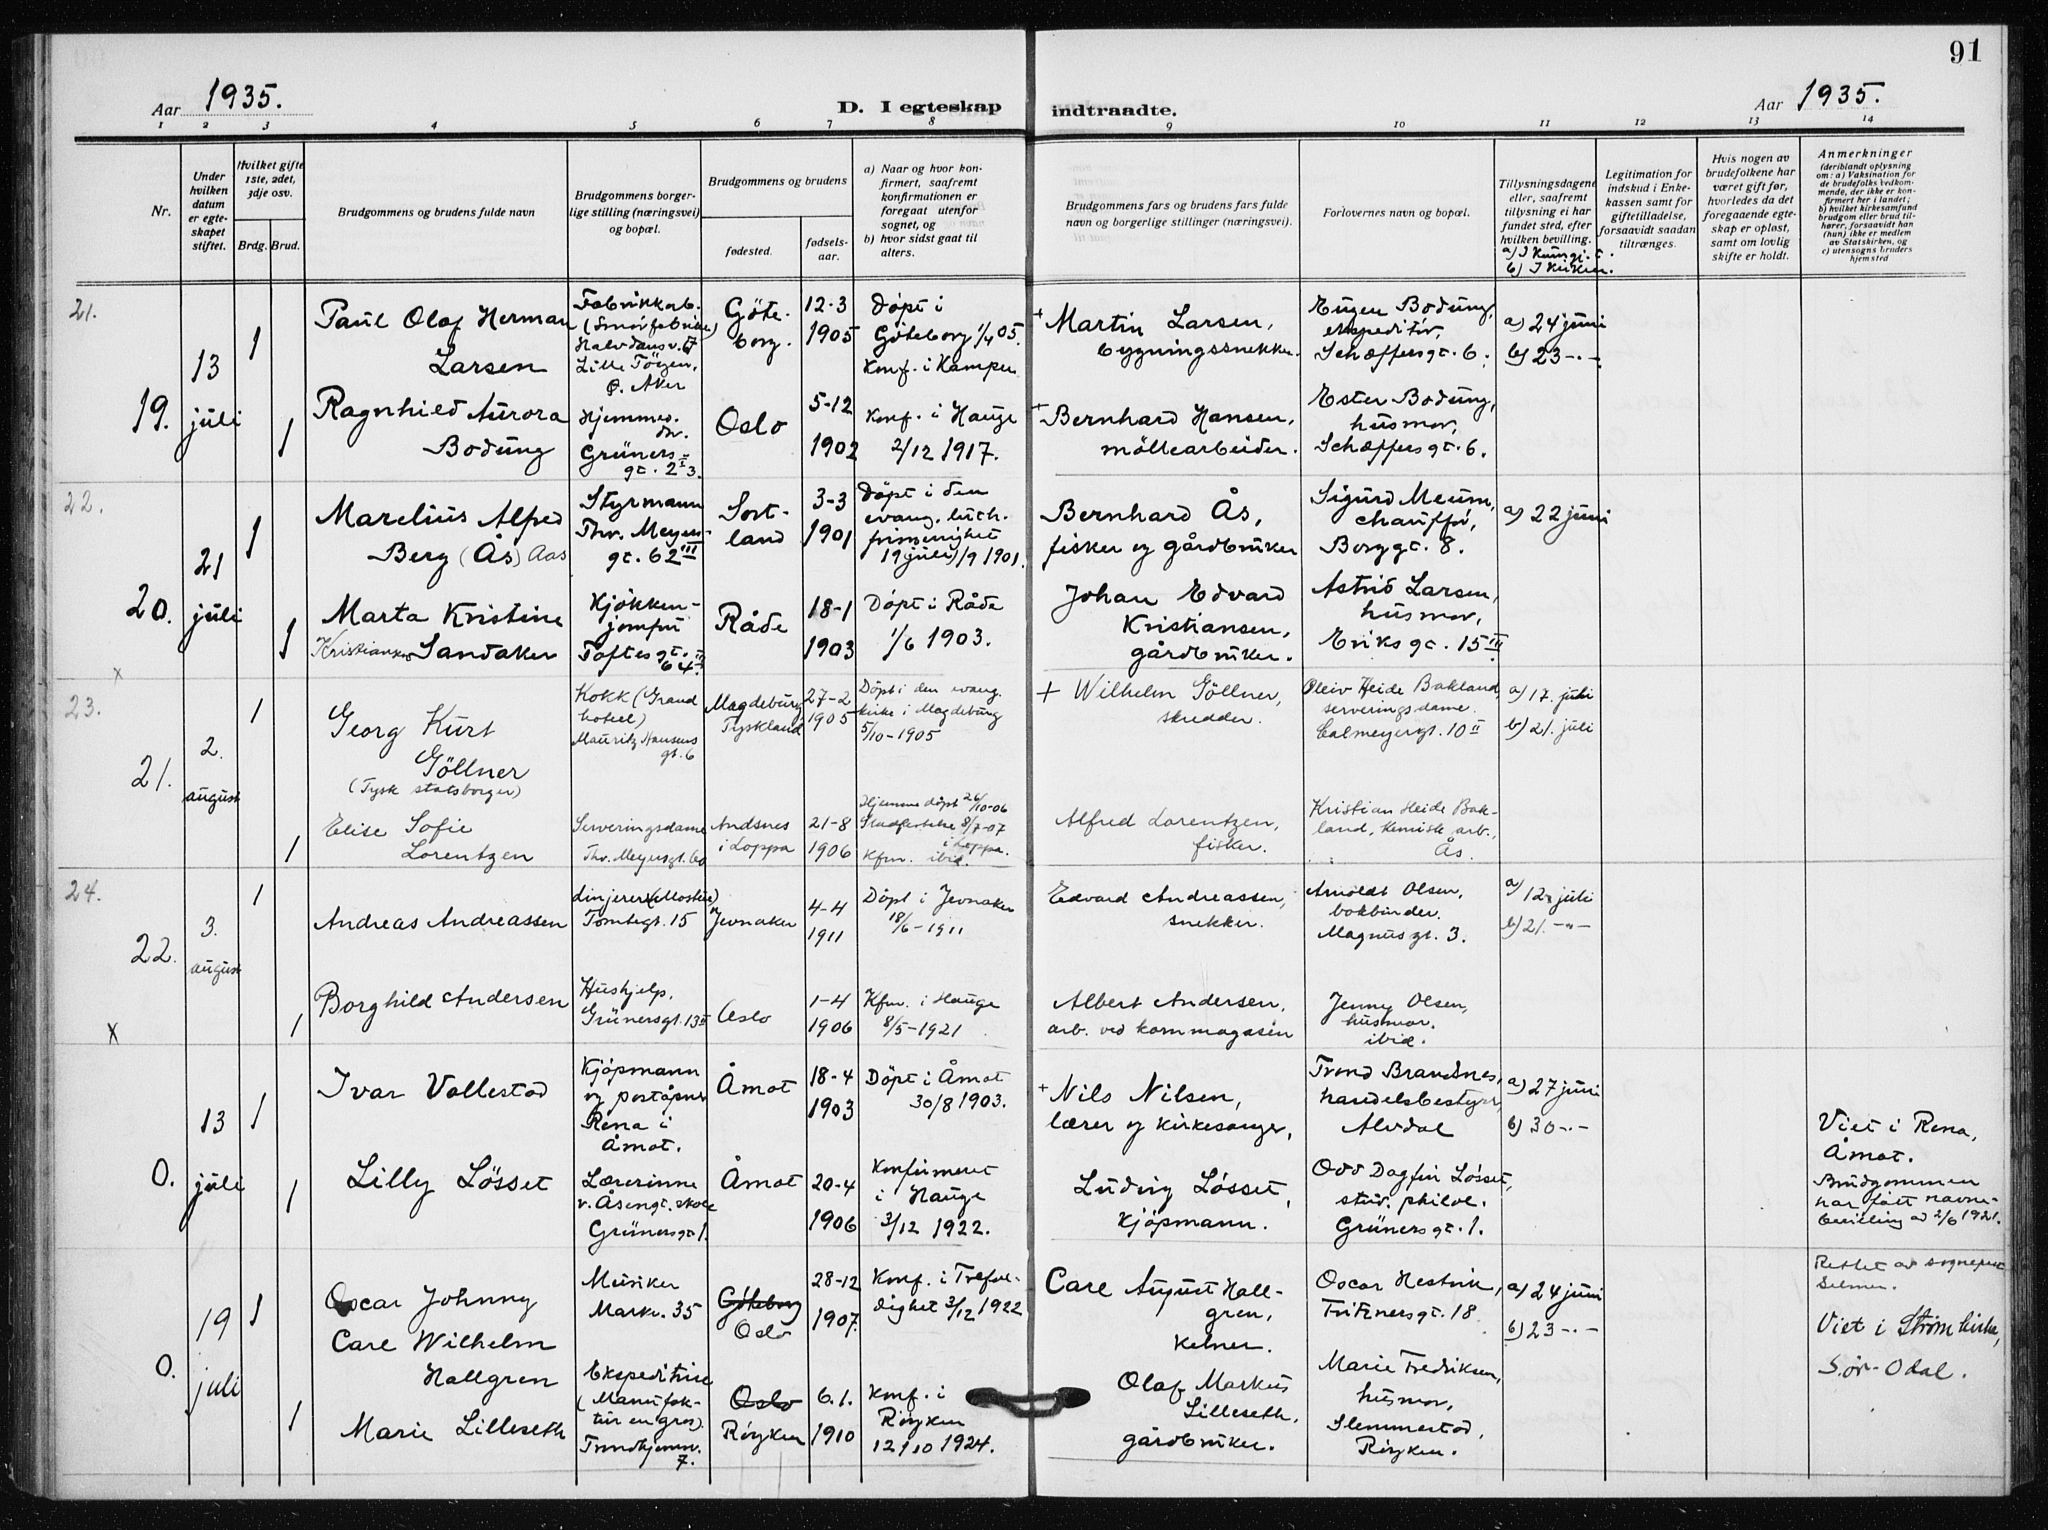 91
Aar 1935.
D. I egteskap
indtraadte.
Aar 1935.
1 2 3 4 5 6 7 8 9 10 11 12 13 14
Nr.
Under
hvilken
datum
er egte-
skapet
stiftet.
Hvilket gifte
1ste, 2det,
3dje osv.
Brdg. Brud.
Brudgommens og brudens fulde navn
Brudgommens borger-
lige stilling (næringsvei)
og bopæl.
Brudgommens og brudens
fødested.
fødsels-
aar.
a) Naar og hvor kon-
firmert, saafremt
konfirmationen er
foregaat utenfor
sognet, og
b) hvor sidst gaat til
alters.
Brudgommens fars og brudens fars fulde
navn og borgerlige stillinger (næringsvei).
Forlovernes navn og bopæl.
Tillysningsdagene
eller, saafremt
tillysning ei har
fundet sted, efter
hvilken bevilling.
b) I kirken.
Legitimation for
indskud i Enke-
kassen samt for
giftetilladelse,
forsaavidt saadan
tiltrænges.
Hvis nogen av
brudefolkene har
været gift før,
hvorledes da det
foregaaende egte-
skap er opløst,
samt om lovlig
skifte er holdt.
Anmerkninger
(deriblandt oplysning
om: a) Vaksination for
de brudefolks vedkom-
mende, der ikke er kon-
firmert her i landet;
b) hvilket kirkesamfund
brudgom eller brud til-
hører, forsaavidt han
(hun) ikke er medlem
av Statskirken, og
c) utensogns bruders
hjemsted
21.
19.
13
juli
1
Paul Olaf Herman
Larsen
Fabrikkarb.
(Smørfabrikk)
Halvdansv. 7
Lille Tøyen,
Ø. Aker
Göte-
borg.
12-3
1905
Döpt i
Göteborg 1/4 05.
Konf. i Kampen
+ Martin Larsen,
bygningssnekker.
Eugen Bodung,
ekspeditör,
Schæffersgt. 6.
a) 24 juni
b) 23 -"-
1
Ragnhild Aurora
Bodung
Hjemmev.
Grüners-
gt. 2 I 3.
Oslo
5-12
1902
Konf. i Hauge
2/12 1917.
+ Bernhard Hansen,
möllearbeider.
Ester Bodung,
husmor,
Schæffersgt. 6.
22.
20.
21
juli
1
Marelius Alfred
Berg (Ås) Aas
Styrmann
Thv. Meyers-
gt. 62 III
Sort-
land
3-3
1901
Döpt i den
evang. luth.
frimenighet
19 juli 1901.
Bernhard Ås,
fisker og gårdbruker
Sigurd Meum,
chauffør,
Borggt. 8.
a) 22 juni
1
Marta Kristine
Kristiansen Sandaker
Kjökken-
jomfru
Toftesgt.
64 II
Råde
18-1
1903
Döpt i Råde
1/6 1903.
Johan Edvard
Kristiansen,
gårdbruker.
Astrid Larsen,
husmor,
Eriksgt. 15 III
x
23.
21.
2.
august
1
Georg Kurt
Göllner
(Tysk statsborger)
Kokk (Grand
hotell)
Mauritz Hansens
gt. 6
Magdeburg
Tyskland
27-2
1905
Döpt i den evang.
kirke i Magdeburg
5/10-1905
+ Wilhelm Göllner,
skredder.
Oleiv Heide Bakland
serveringsdame.
Calmeyersgt. 10 II
a) 17. juli
b) 21. juli
1
Elise Sofie
Lorentzen
Serveringsdame
Thv. Meyersgt. 60
Andsnes
i Loppa
21-8
1906
Hjemme döpt 26/10-06
Stadfestelse 8/7-07
i Loppa.
Kfm. ibid.
Alfred Lorentzen,
fisker.
Kristian Heide Bak-
land, kemisk arb.,
Ås.
24.
22.
3.
august
1
Andreas Andreassen
Linjerer (Mostue)
Tomtegt. 15
Jevnaker
4-4
1911
Döpt i Jevnaker
18/6-1911
Edvard Andreassen,
snekker.
Arnoldt Olsen,
bokbinder.
Magnusgt. 3.
a) 12. juli
b) 21. -"-
1
Borghild Andersen
Hushjelp,
Grünersgt. 13 II
Oslo
1-4
1906
Kfm. i Hauge
8/5-1921
Albert Andersen,
arb. ved kornmagasin
Jenny Olsen,
husmor.
ibid.
x
0.
13
juli
1
Ivar Vollestad
Kjöpmann
og poståpner
Rena i
Åmot.
Åmot
18-4
1903
Döpt i Åmot
30/8 1903.
+ Nils Nilsen,
lærer og kirkesanger,
Trond Brandsnes,
handelsbestyrer,
Alvdal
a) 27 juni
b) 30 -"-
Viet i Rena,
Åmot.
Brudgommen
har fått navne-
bevilling av 2/6 1921.
1
Lilly Lösset
Lærerinne
v. Åsengt. skole
Grünersgt 1.
Åmot
20-4
1906
Konfirmert
i Hauge
3/12 1922.
Ludvig Lösset,
Kjöpmann.
Odd Dagfin Lösset,
stud. philol.
Grünersgt. 1.
0.
19
juli
1
Oscar Johnny
Carl Wilhelm
Hallgren
Musiker
Markv. 35
Göteborg
Oslo
28-12
1907.
Konf. i Trefol-
dighet 3/12 1922
Carl August Hall-
gren,
kelner.
Oscar Hestvik,
Fritznersgt. 18
a) 24 juni
b) 23 -"-
Rettet av sogneprest
Selmer.
Viet i Strøm kirke,
Sör-Odal.
1
Marie Lilleseth
Ekspeditrise
(Manufak-
tur en gros).
Trondhjemsv.
7.
Oslo
Röyken
6.1.
1910
Konf. i
Röyken
12/10 1924.
Olaf Markus
Lilleseth,
gårdbruker.
Marie Fredriksen,
husmor,
Slemmestad,
Röyken.